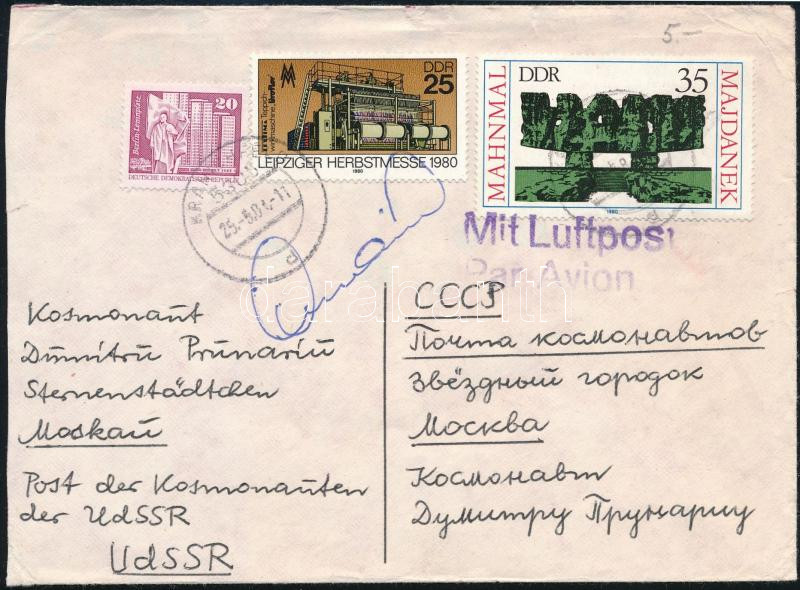 5.-
20
Berlin-Leninplatz
DEUTSCHE DEMOKRATISCHE REPUBLIK
DDR
25
Teppich-
LEIPZIGER HERBSTMESSE 1980
1980
DDR
35
MAHNMAL
MAJDANEK
1980
Mit Luftpost
Par Avion
Kosmonaut
Dumitru Prunariu
Sternenstädtchen
Moskau
Post der Kosmonauten
der UdSSR
UdSSR
СССР
Почта космонавтов
Звёздный городок
Москва
Космонавт
Думитру Прунариу
darabanth